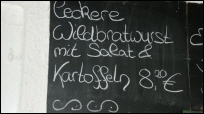 Leckere
Wildbratwurst
mit Salat &
Kartoffeln 8,20 €